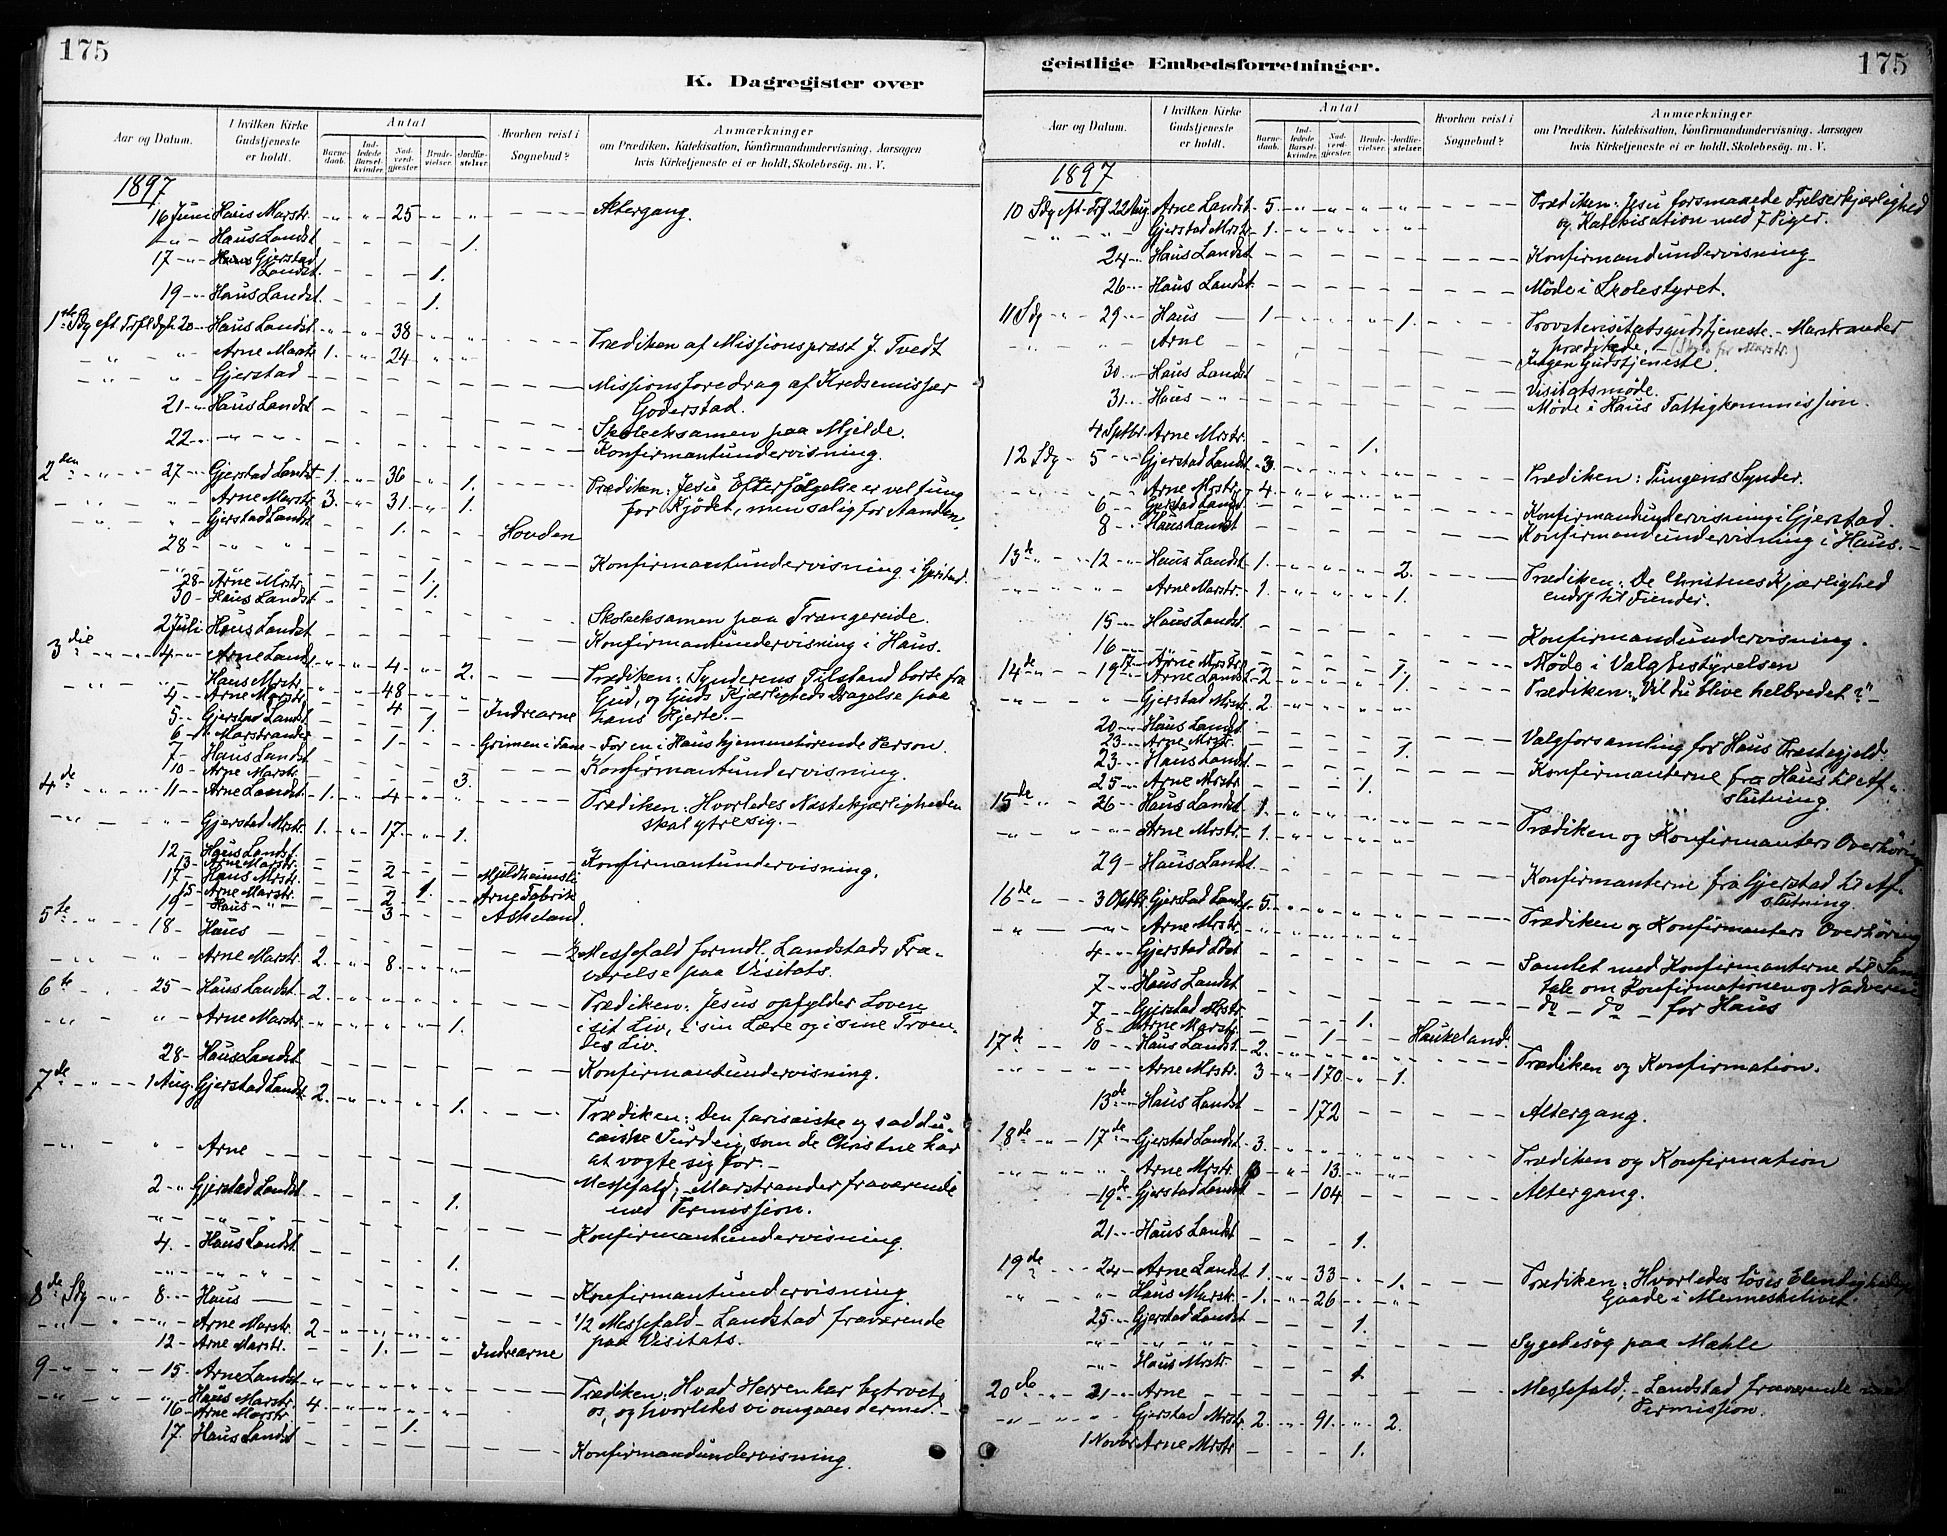 175
K. Dagregister over
Aar og Datum.
I hvilken Kirke Gudstjeneste er holdt.
Antal
Barnedaab.
Indledede Barselkvinder.
Nadverdgjæster.
Brudevielser.
Jordfæstelser.
Hvorhen reist i Sognebud?
Anmærkninger
om Prædiken, Katekisation, Konfirmandundervisning, Aarsagen
hvis Kirketjeneste ei er holdt, Skolebesøg, m. V.
1897
16 Juni Haus Marstr. 25 Altergang.
" Haus Landst 1.
17 " Gjerstad Landst. 1.
19 " Haus Landst. 1.
1ste Sdg eft Trfldgh 20 Haus Landst. 38 Prædiken af Missionsprest J. Tvedt
" " Arne Marstr 1. 24
" " Gjerstad Missionsforedrag af Kredsemissær
Goderstad.
21 " Haus Landst Skoleeksamen paa Mjelde.
22 Konfirmantundervisning.
2den " 27 Gjerstad Landst 1. 36 1. Prædiken: Jesu Efterfølgelse er vel tung
" Arne Marstr. 3. 31. 1. for Kjødet, men salig for Aanden.
" Gjerstad Landst. 1. Hovden
28 " Konfirmantundervisning i Gjerstad.
28 Arne Mrstr. 1.
30 Haus Landst 1.
Skoleeksamen paa Trangereide.
2 Juli Haus Landst Konfirmantundervisning i Haus.
3die " 4 Arne Landst 4 2. Prædiken: Synderens Tilstand borte fra
" Haus Mrstr. 48 Gud, og Guds Kjærligheds Dragelse paa
4. Arne Marstr. 4 Indrearne hans Hjerte.
5. Gjerstad Landst 1.
6 Marstrander 1 Grimen i Fane For en i Haus hjemmehørende Person.
7 Haus Landst Konfirmantundervisning.
10 Arne Marstr. 3.
4de " 11 Arne Landst. 1. 4 Prædiken: Hvorledes Næstekjærligheden
skal ytre sig.
" Gjerstad Mrstr. 1. 17. 1.
12 Haus Landst. Konfirmantundervisning.
13 Arne Marstr. 2
17 Haus Mrstr.
15 Arne Marstr. 2 1. Arne Fabrik
19 Haus 3 Askeland.
5te " 18 Haus ½ Messefald formdl. Landstads Fra-
" Arne Marstr. 2. 8. værelse paa Visitats.
6te " 25 Haus Landst. 2. Prædiken: Jesus opfylder Loven
" Arne Marstr. 1. i sit Liv, i sin Lære og i sine Troen-
des Liv.
28 Haus Landst Konfirmantundervisning.
7de " 1 Aug. Gjerstad Landst. 2. 1. Prædiken: Den farisæiske og saddu-
cæiske Surdeig, som de Christne har
" Arne at vogte sig for.
Messefald; Marstrander fraværende
2 " Gjerstad Landst. 1. med Permission.
" " Konfirmantundervisning.
4. Haus Landst. 1.
" " Konfirmantundervisning.
8de Sdg " 8 Haus 1/2 Messefald – Landstad fraværende
" Arne Marstr. 2 paa Visitats.
12 Arne Marstr. 1. Indrearne
9 " 15 Arne Landst Prædiken: Hvad Herren har betroet
" Haus Marstr. 4 os, og hvorledes vi omgaaes dermed.
16 Arne Marstr. 1.
17 Haus Landst Konfirmandundervisning.
geistlige Embedsforretninger.
175
Aar og Datum.
I hvilken Kirke Gudstjeneste er holdt.
Antal
Barnedaab.
Indledede Barselkvinder.
Nadverdgjæster.
Brudevielser.
Jordfæstelser.
Hvorhen reist i Sognebud?
Anmærkninger
om Prædiken, Katekisation, Konfirmandundervisning, Aarsagen
hvis Kirketjeneste ei er holdt, Skolebesøg, m. V.
1897
10 Sdg eft. Trf. 22 Aug. Arne Landst 5. Prædiken: Jesu forsmaaede Frelserkjærlighed
" Gjerstad Mrstr 1. og Katekisation med 7 Piger.
24 Haus Landst Konfirmandundervisning
26 Haus Landst. Møde i Skolestyret.
11 Sdg " 29 Haus 1 1. Provstevisitatsgudstjeneste. Marstrander
prædikede.
" Arne Ingen Gudstjeneste.
30 Haus Landst Visitatsmøde.
31 Haus Møde i Haus Fattigkommission.
4 Sptbr. Arne Mrstr. 1.
12 Sdg 5 Gjerstad Landst. 3. Prædiken: Tungens Synder.
" Arne Mrstr. 4.
6 Gjerstad Landst Konfirmandundervisning i Gjerstad.
8 Haus Landst Konfirmandundervisning i Haus.
13de " 12 Haus Landst 1. 2. Prædiken: De Christnes Kjærlighed
endog til Fiender.
" Arne Marstr. 1. 1.
15 Haus Landst. Konfirmandundervisning.
16 Møde i Valgbestyrelsen
17 Arne Mrstr. 1,
14de " 19 Arne Landst 2 1. Prædiken: "Vil du blive helbredet?"
" Gjerstad Mrstr. 2.
20 Haus Landst Valgforsamling for Haus Præstegjeld.
23 Arne Mrstr. 1.
23 Haus Landst. Konfirmanterne fra Haus til Af-
slutning
25 Arne Mrstr. 1.
15de " 26 Haus Landst 1. Prædiken og Konfirmanters Overhøring
" Arne Mrstr. 1.
29 Haus Landst Konfirmanterne fra Gjerstad til Af-
slutning.
16de " 3 Oktbr Gjerstad Landst 5. Prædiken og Konfirmanters Overhøring
" Arne Mrstr.
4 Gjerstad Ldst Samlet med Konfirmanterne til Sam-
tale om Konfirmationen og Nadveren
7 Haus Landst do – do – for Haus
7 Gjerstad Mrstr. 1.
8 Arne Marstr. 1 Haukeland.
17de 10 Haus Landst. 2. Prædiken og Konfirmation.
" Arne Mrstr. 3 170 1.
13de Haus Landst 172 Altergang.
18de " 17de Gjerstad Landst. 3. Prædiken og Konfirmation
" Arne Mrstr. 3 13.
19de Gjerstad Landst 104 Altergang.
21 Haus Landst 1.
19de 24 Arne Landst 1. 33 1. Prædiken: Hvorledes løses Elendighedens
Gaade i Menneskelivet.
" Haus Marstr. 1. 26
25 Gjerstad Landst 1.
" " Sygebesøg paa Mæhle
" Haus Mrstr. 1
20de 31 Arne Messefald; – Landstad fraværende med
Permission.
" Gjerstad Mrstr. 2. 91. 2.
1 Novbr Arne Mrstr 1.